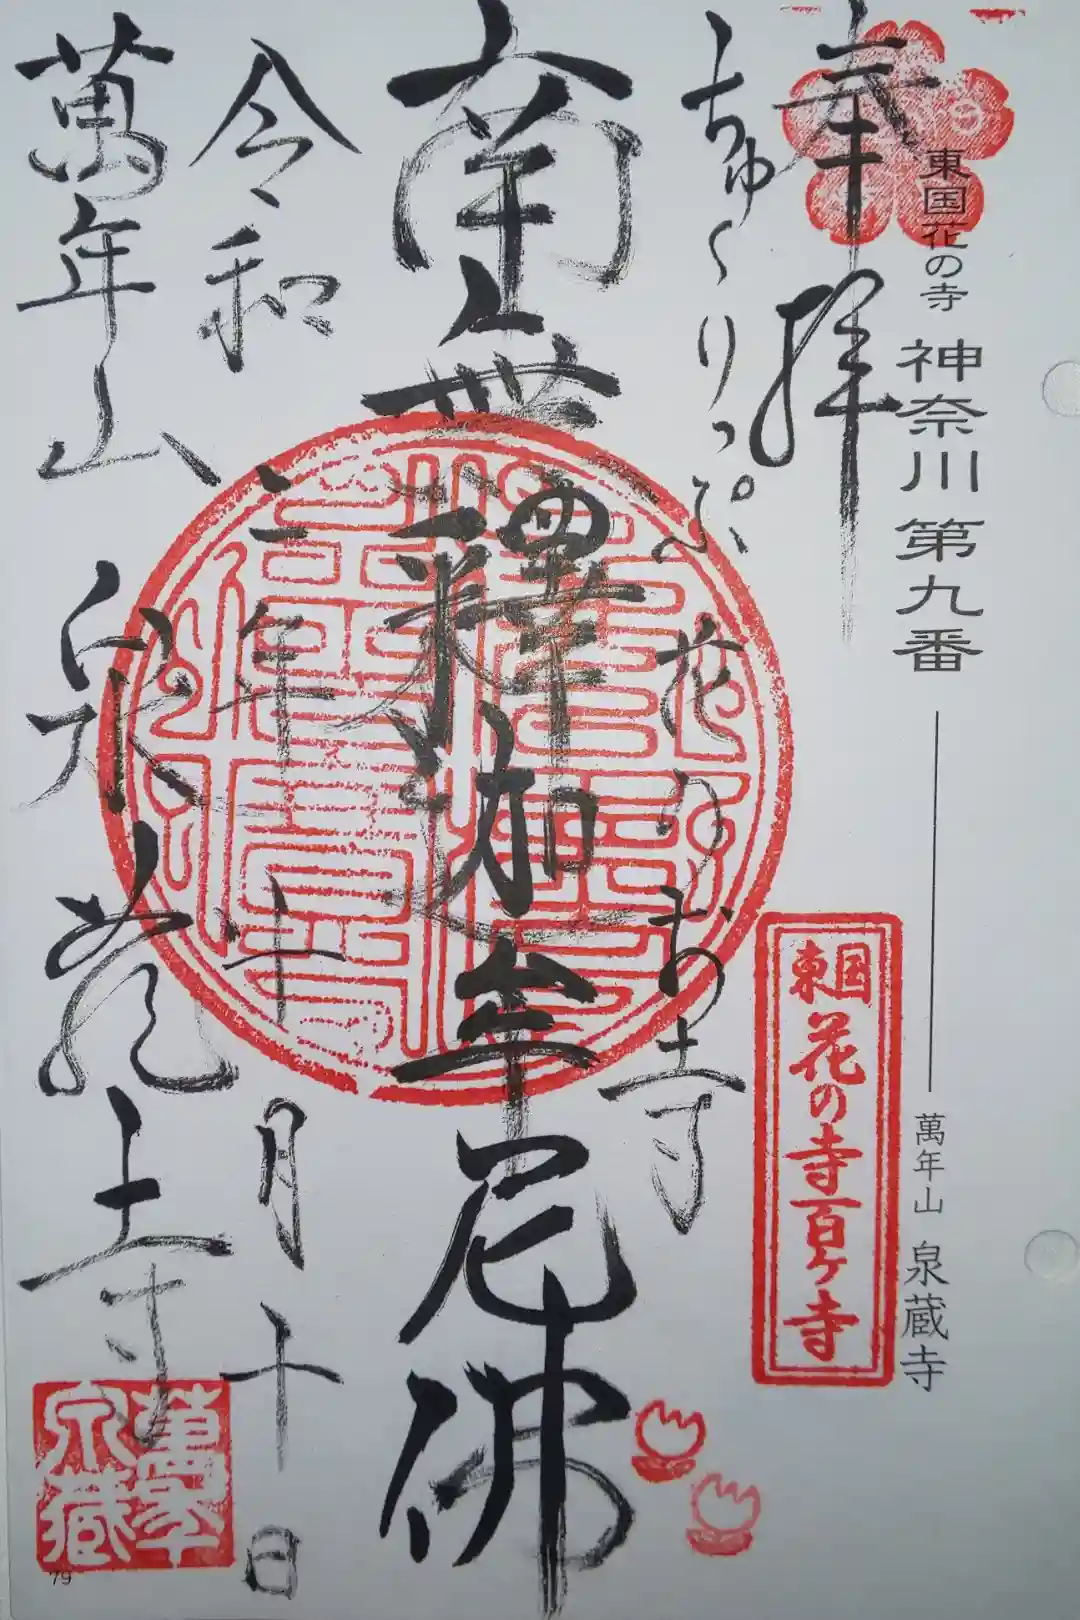 東国花の寺 神奈川第九番
萬年山 泉蔵寺
奉拝
東国花の寺百ヶ寺
ちゅーりっぷ花のお寺
南無釋迦牟尼佛
令和二年十一月十日
萬年山 泉蔵寺
79